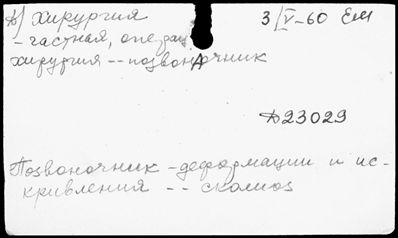 А) Хирургия 3/V-60 Ем
- частная, операц.
хирургия -- позвоночник
Д23029
Позвоночник - деформации и ис-
кривления -- сколиоз